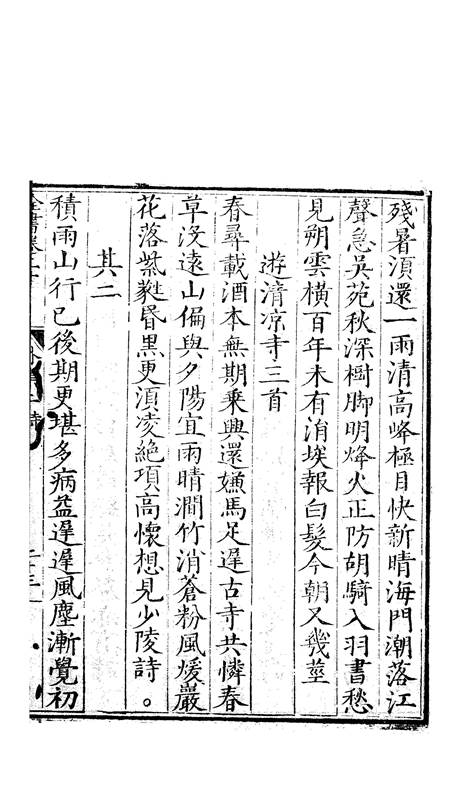 殘暑湏還一雨清高峰極目快新晴海門潮落江
聲急吳苑秋深樹脚明烽火正防胡騎入羽書愁
見朔雲橫百年未有涓埃報白髮今朝又幾莖
遊清凉寺三首
春尋載酒本無期乗興還嫌馬足遲古寺共憐春
草没遠山偏與夕陽宜雨晴澗竹消蒼粉風煖巖
花落紫蕤昏黒更湏凌絶頂高懷想見少陵詩。
其二
積雨山行已後期更堪多病益遲遲風塵漸覺初